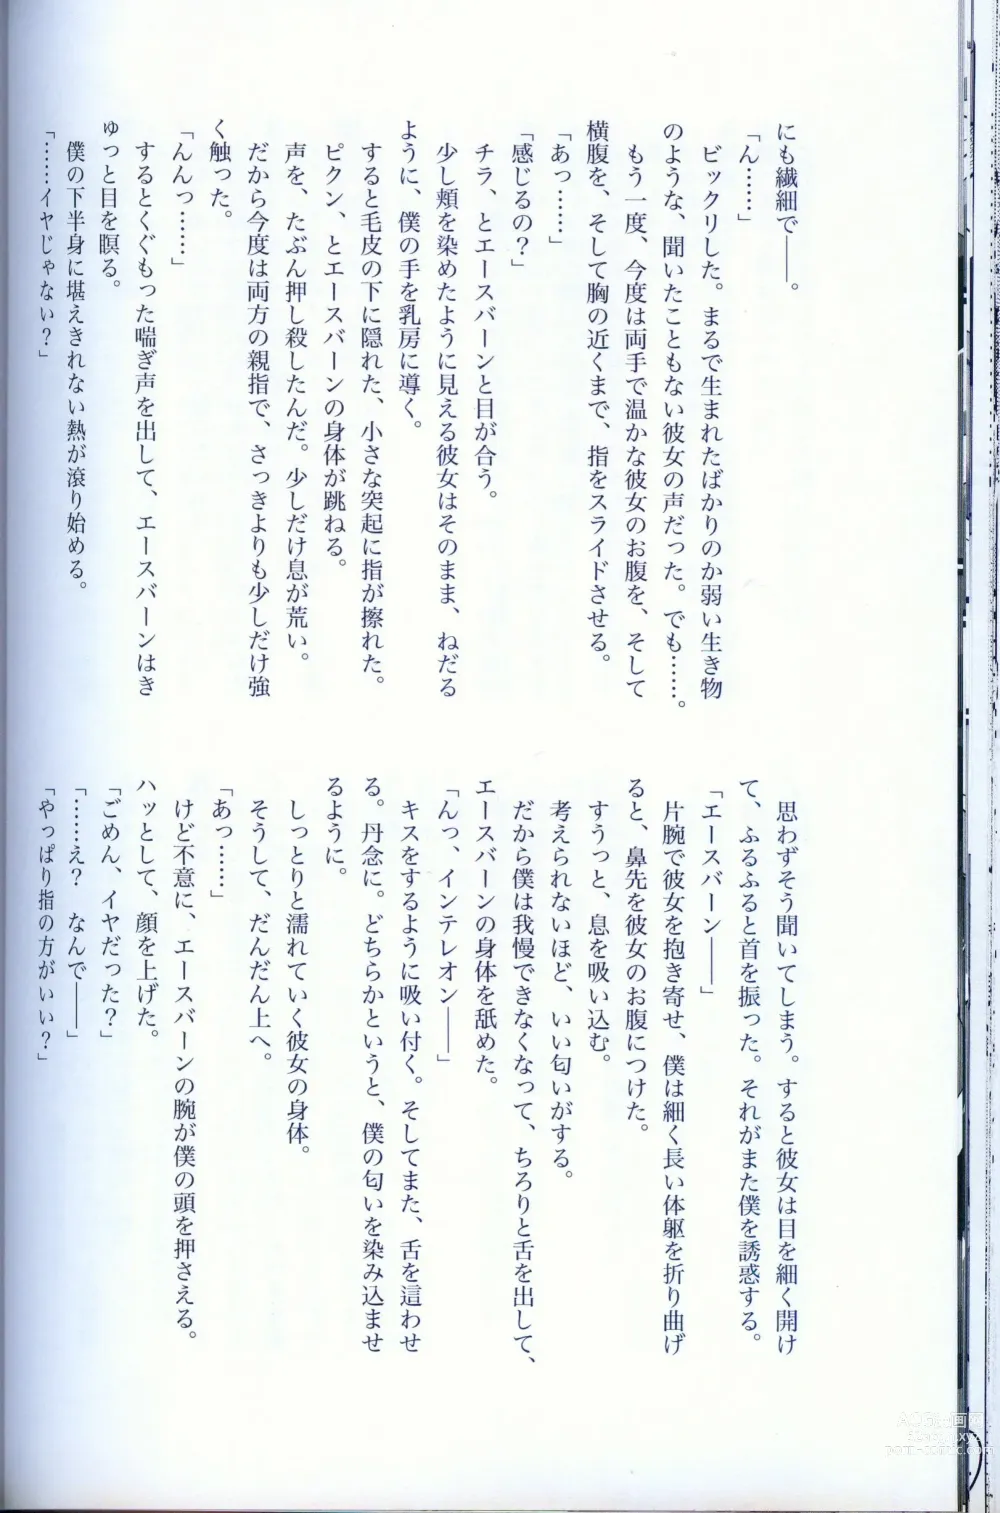 にも繊細で――。
「ん……」
ビックリした。まるで生まれたばかりのか弱い生き物
のような、聞いたこともない彼女の声だった。でも……。
もう一度、今度は両手で温かな彼女のお腹を、そして
横腹を、そして胸の近くまで、指をスライドさせる。
「あっ……」
「感じるの？」
チラ、とエースバーンと目が合う。
少し頬を染めたように見える彼女はそのまま、ねだる
ように、僕の手を乳房に導く。
すると毛皮の下に隠れた、小さな突起に指が擦れた。
ピクン、とエースバーンの身体が跳ねる。
声を、たぶん押し殺したんだ。少しだけ息が荒い。
だから今度は両方の親指で、さっきよりも少しだけ強
く触った。
「んんっ……」
するとくぐもった喘ぎ声を出して、エースバーンはき
ゅっと目を瞑る。
僕の下半身に堪えきれない熱が滾り始める。
「……イヤじゃない？」
思わずそう聞いてしまう。すると彼女は目を細く開け
て、ふるふると首を振った。それがまた僕を誘惑する。
「エースバーン――」
片腕で彼女を抱き寄せ、僕は細く長い体躯を折り曲げ
ると、鼻先を彼女のお腹につけた。
すうっと、息を吸い込む。
考えられないほど、いい匂いがする。
だから僕は我慢できなくなって、ちろりと舌を出して、
エースバーンの身体を舐めた。
「んっ、インテレオン――」
キスをするように吸い付く。そしてまた、舌を這わせ
る。丹念に。どちらかというと、僕の匂いを染み込ませ
るように。
しっとりと濡れていく彼女の身体。
そうして、だんだん上へ。
「あっ……」
けど不意に、エースバーンの腕が僕の頭を押さえる。
ハッとして、顔を上げた。
「ごめん、イヤだった？」
「……え？　なんで――」
「やっぱり指の方がいい？」